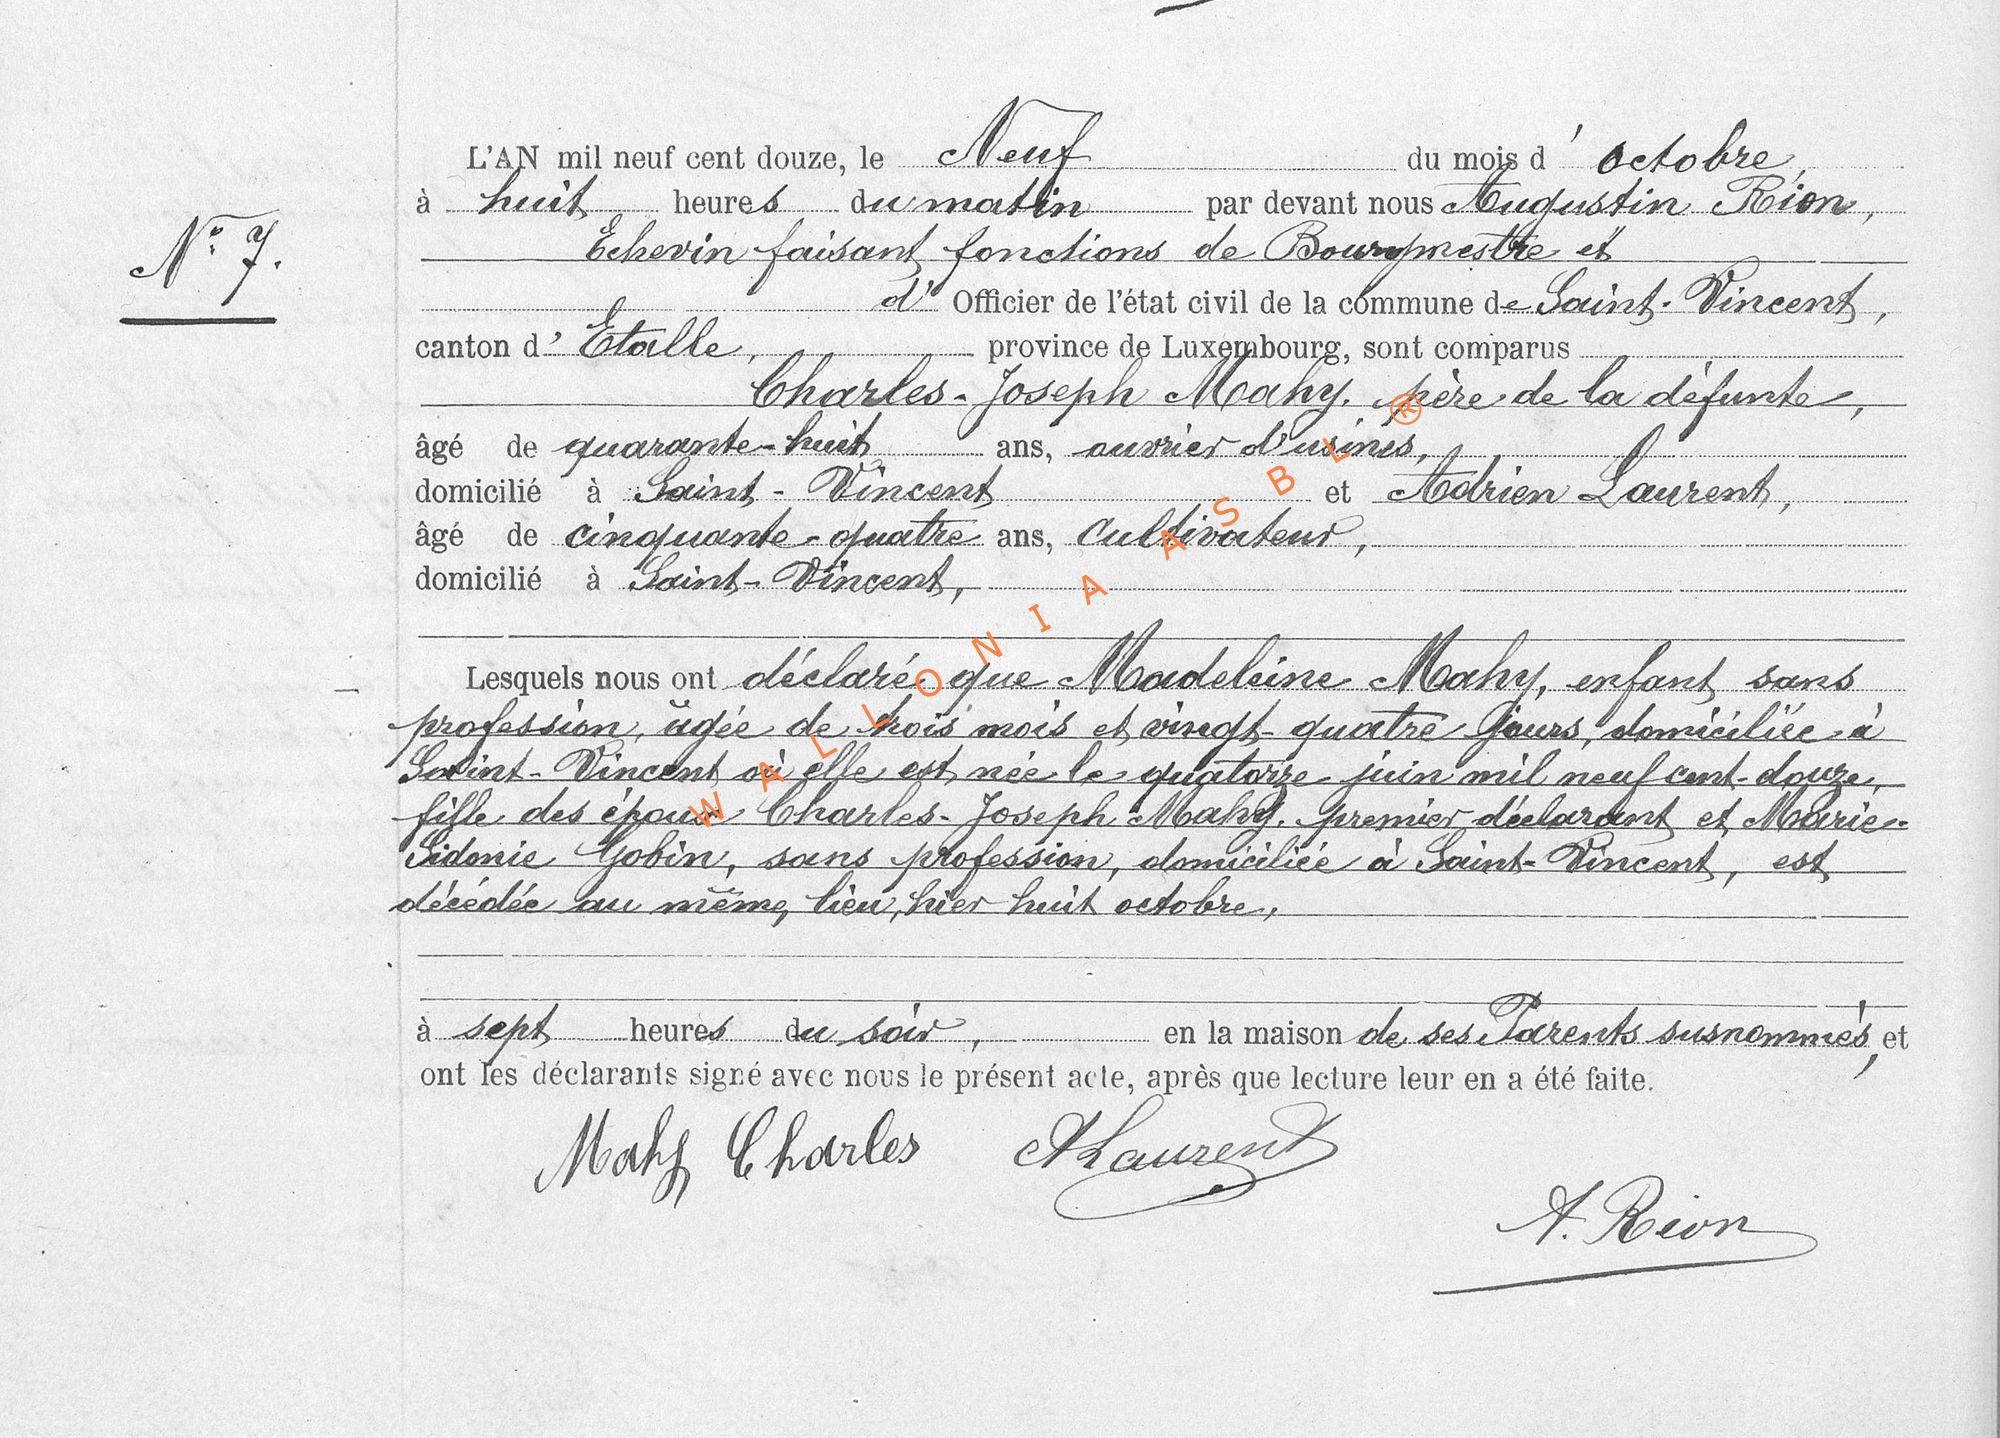 L'AN mil neuf cent douze, le Neuf du mois d'octobre,
N° 7.
à huit heures du matin par devant nous Augustin Rion,
Echevin faisant fonctions de Bourgmestre et
d' Officier de l'état civil de la commune de Saint-Vincent,
canton d'Etalle, province de Luxembourg, sont comparus
Charles-Joseph Mahy, père de la défunte,
âgé de quarante-huit ans, ouvrier d'usines,
domicilié à Saint-Vincent et Adrien Laurent,
âgé de cinquante-quatre ans, cultivateur,
domicilié à Saint-Vincent,
Lesquels nous ont déclaré que Madeleine Mahy, enfant sans
profession, âgée de trois mois et vingt-quatre jours, domiciliée à
Saint-Vincent où elle est née le quatorze juin mil neuf cent-douze,
fille des époux Charles-Joseph Mahy, premier déclarant et Marie-
Sidonie Gobin, sans profession, domiciliée à Saint-Vincent, est
décédée au même lieu, hier huit octobre,
à sept heures du soir, en la maison de ses Parents susnommés, et
ont les déclarants signé avec nous le présent acte, après que lecture leur en a été faite.
Mahy Charles ALaurent
A. Rion
WALLONIA ASBL ®